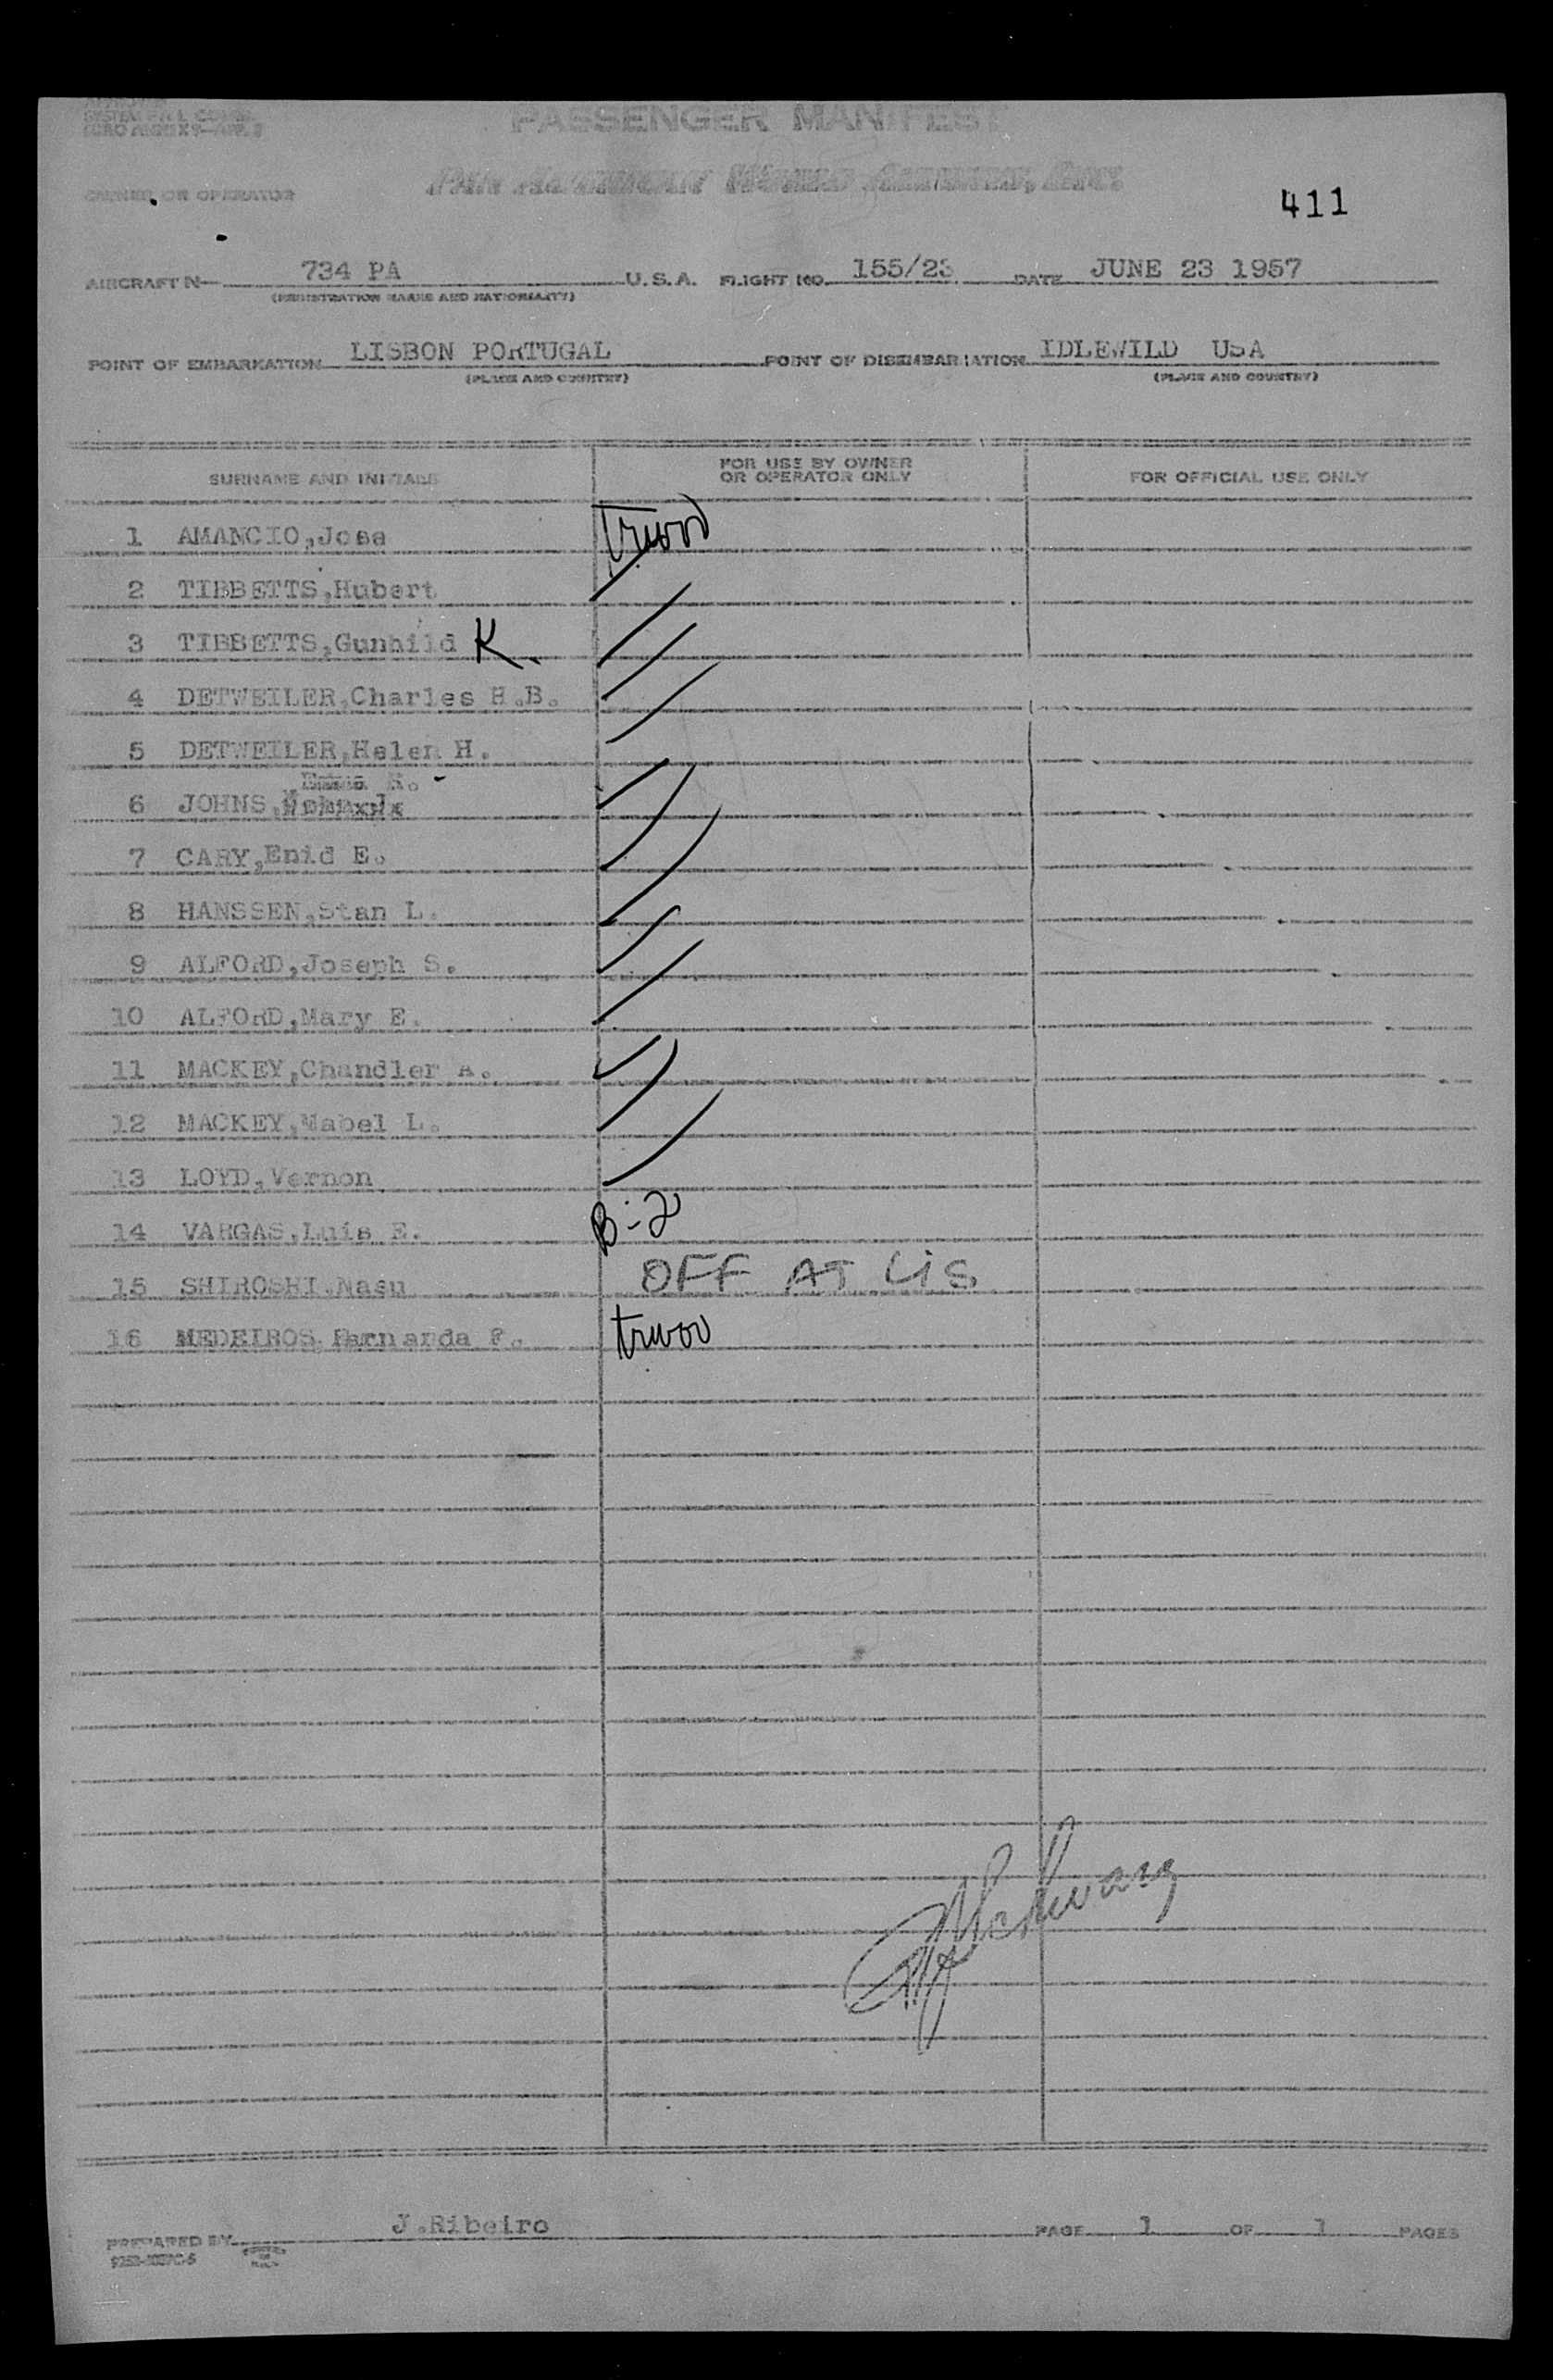 PASSENGER MANIFEST
PAN AMERICAN WORLD AIRWAYS, INC.
OWNER OR OPERATOR
411
AIRCRAFT N 734 PA U.S.A. FLIGHT NO. 155/23 DATE JUNE 23 1957
(REGISTRATION MARKS AND NATIONALITY)
POINT OF EMBARKATION LISBON PORTUGAL POINT OF DISEMBARKATION IDLEWILD USA
(PLACE AND COUNTRY) (PLACE AND COUNTRY)
SURNAME AND INITIALS FOR USE BY OWNER OR OPERATOR ONLY FOR OFFICIAL USE ONLY
1 AMANCIO,Jose trwov
2 TIBBETTS,Hubert
3 TIBBETTS,Gunhild K.
4 DETWEILER,Charles H.B.
5 DETWEILER,Helen H.
6 JOHNS,
7 CARY,Enid E.
8 HANSSEN,Stan L.
9 ALFORD,Joseph S.
10 ALFORD,Mary E.
11 MACKEY,Chandler A.
12 MACKEY,Mabel L.
13 LOYD,Vernon
14 VARGAS,Luis E. B-2
15 SHIROSHI,Nasu OFF AT LIS
16 MEDEIROS,Fernanda F. trwov
PREPARED BY J.Ribeiro PAGE 1 OF 1 PAGES